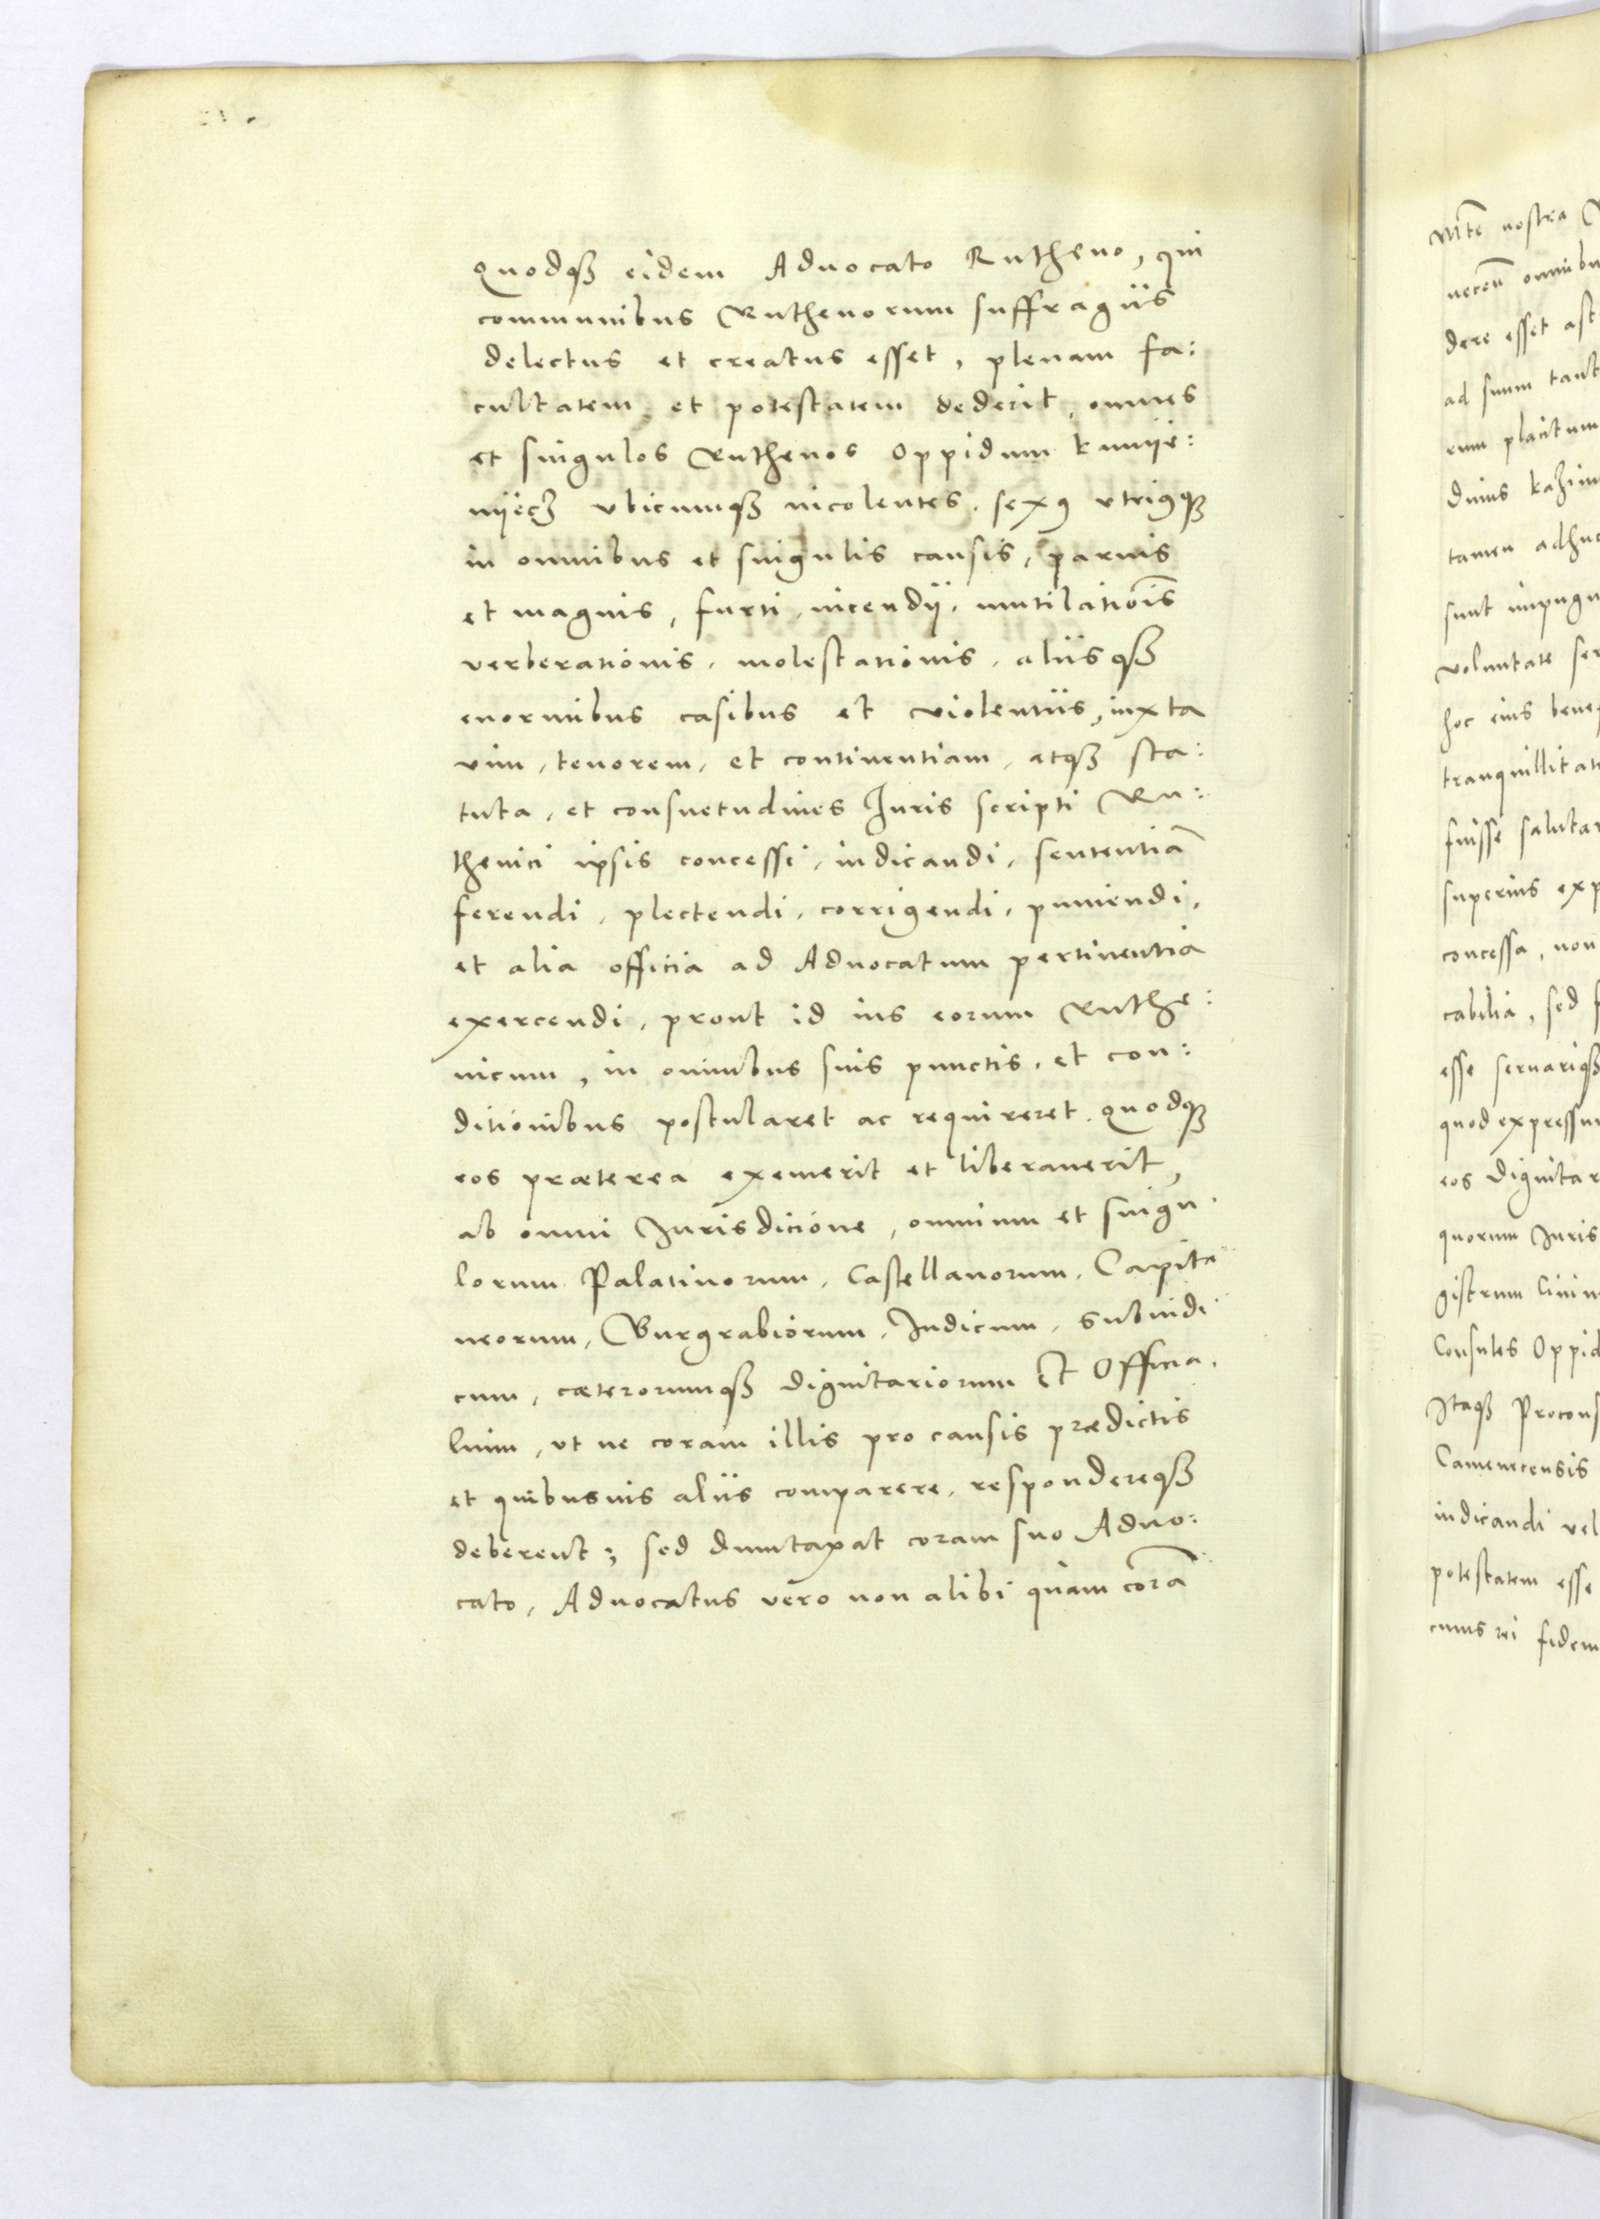 Quodqȝ eidem Aduocato Rutheno, qui
communibus Ruthenorum suffragiis
delectus et creatus esset, plenam fa:
cultatem et potestatem dederit, omnes
et singulos Ruthenos Oppidum
vbicumqȝ incolentes, sexꝰ vtriꝰqȝ
in omnibus et singulis causis, paruis
et magnis, furti, incendij, mutilatiōis
verberationis, molestationis, aliisqȝ
enormibus casibus et violentiis, iuxta
vim, tenorem, et continentiam, atqȝ sta:
tuta, et consuetudines Iuris scripti Ru:
thenici ipsis concessi, iudicandi, sententiā
ferendi, plectendi, corrigendi, puniendi,
et alia officia ad Aduocatum pertinentia
exercendi, prout id ius eorum Ruthe:
nicum, in omnibus suis punctis, et con:
ditionibus postularet ac requireret. Quodqȝ
eos præterea exemerit et liberauerit,
ab omni Iurisdicione, omnium et singu:
lorum Palatinorum, Castellanorum, Capita
neorum, Burgrabiorum, Iudicum, Subiudi
cum, cæterorumqȝ dignitariorum Et Officia,
lium, vt ne coram illis pro causis prædictis
et quibusuis aliis comparere, respondereqȝ
deberent; sed dumtaxat coram suo Aduo:
cato, Aduocatus vero non alibi quam corā
nostra
omnibu
dere esset ast
ad suum tant
rum placitum
diuus Kazim
tamen adhuc
sunt impugn
voluntate ser
hoc eius bene
tranquillitat
fuisse saluta
superius exp
concessa, non
cabilia, sed f
esse seruariqȝ
quod expressu
eos dignitar
quorum Iuris
gistrum Ciuiu
Consules Oppid
Itaqȝ Procons
Camenecensis
iudicandi vel
potestatem esse
cuius rei fidem